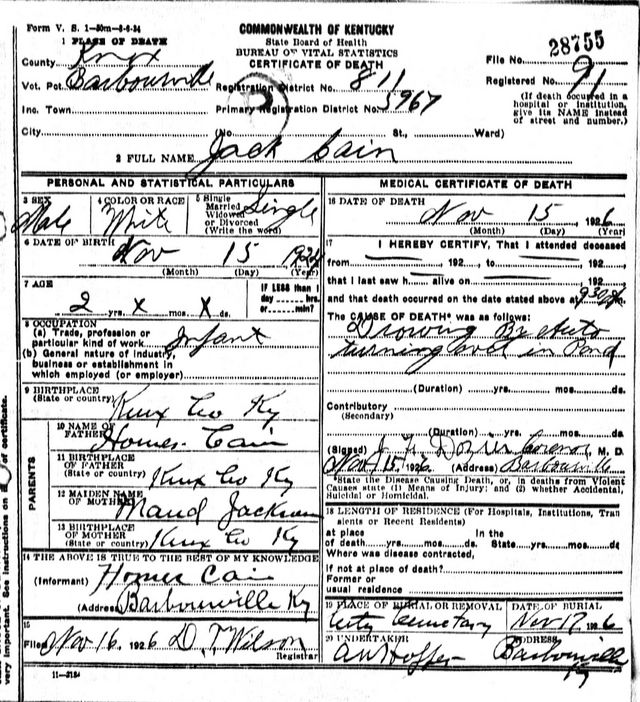 Form V. S. 1-50m-8-6-24
COMMONWEALTH OF KENTUCKY
State Board of Health
BUREAU OF VITAL STATISTICS
CERTIFICATE OF DEATH
28755
1 PLACE OF DEATH
County Knox
Vot. Pct. Barbourville
Inc. Town
City
Registration District No. 811
Primary Registration District No. 5967
File No.
Registered No. 91
(If death occurred in a hospital or institution, give its NAME instead of street and number.)
(No. St., Ward)
2 FULL NAME Jack Cain
PERSONAL AND STATISTICAL PARTICULARS
3 SEX Male
4 COLOR OR RACE White
5 Single Married Widowed or Divorced (Write the word) Single
6 DATE OF BIRTH Nov 15 1924
(Month) (Day) (Year)
7 AGE
2 yrs. X mos. X ds.
IF LESS than 1 day hrs. or min?
8 OCCUPATION
(a) Trade, profession or particular kind of work Infant
(b) General nature of industry, business or establishment in which employed (or employer)
9 BIRTHPLACE (State or country) Knox Co Ky
PARENTS
10 NAME OF FATHER Homer Cain
11 BIRTHPLACE OF FATHER (State or country) Knox Co Ky
12 MAIDEN NAME OF MOTHER Maud Jackson
13 BIRTHPLACE OF MOTHER (State or country) Knox Co Ky
14 THE ABOVE IS TRUE TO THE BEST OF MY KNOWLEDGE
(Informant) Homer Cain
(Address) Barbourville Ky
15
Filed Nov 16 1926 D. T. Wilson
Registrar
11-3184
MEDICAL CERTIFICATE OF DEATH
16 DATE OF DEATH
Nov 15, 1926
(Month) (Day) (Year)
17 I HEREBY CERTIFY, That I attended deceased
from 192 to 192
that I last saw h alive on 192
and that death occurred on the date stated above at 9:30
The CAUSE OF DEATH* was as follows:
Drowing By Auto
turning over in Pond
(Duration) yrs. mos. ds.
Contributory
(Secondary)
(Duration) yrs. mos. ds.
(Signed) Coroner M. D.
Nov 15, 1926 (Address) Barbourville
*State the Disease Causing Death, or, in deaths from Violent Causes state (1) Means of Injury; and (2) whether Accidental, Suicidal or Homicidal.
18 LENGTH OF RESIDENCE (For Hospitals, Institutions, Transients or Recent Residents)
at place of death yrs. mos. ds. In the State yrs. mos. ds.
Where was disease contracted,
if not at place of death?
Former or usual residence
19 PLACE OF BURIAL OR REMOVAL City Cemetary
DATE OF BURIAL Nov 17, 1926
20 UNDERTAKER
ADDRESS Barbourville Ky
very important. See instructions on of certificate.